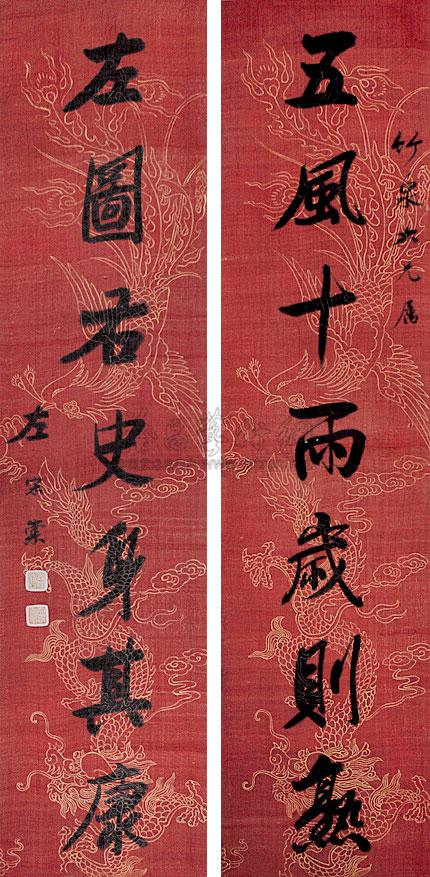 五風十雨歲則熟
竹泉大兄属
左圖右史身其康
左宗棠